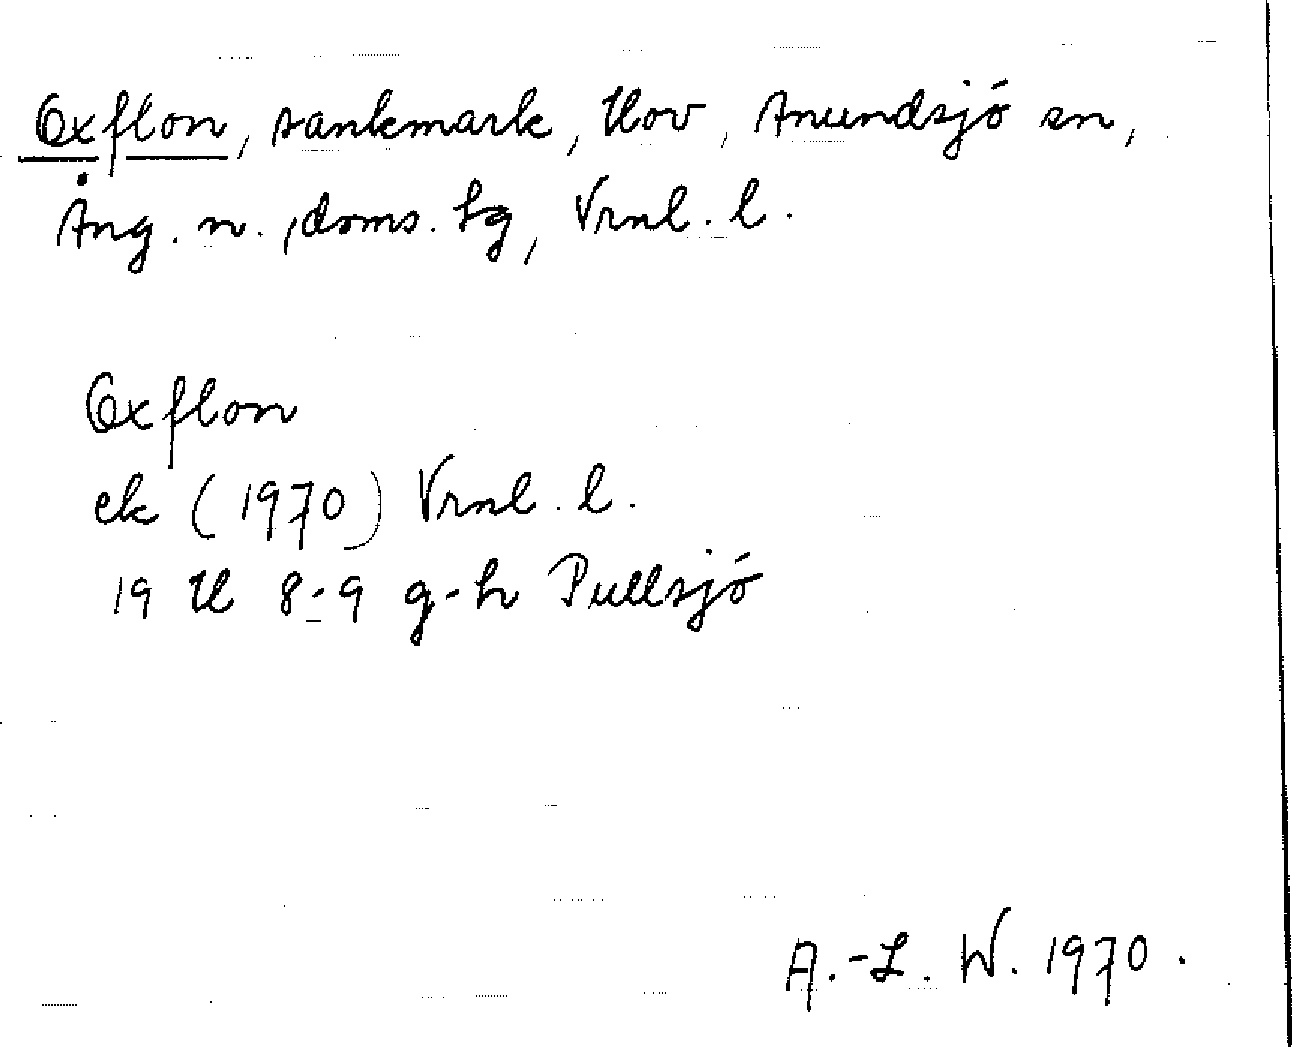 Oxflon, sankmark, Hov, Anundsjö sn,
Ång. n., doms. tg, Vrnl. l.
Oxflon
ek (1970) Vrnl. l.
19 H 8-9 g-h Pullsjö
A.-L. W. 1970.